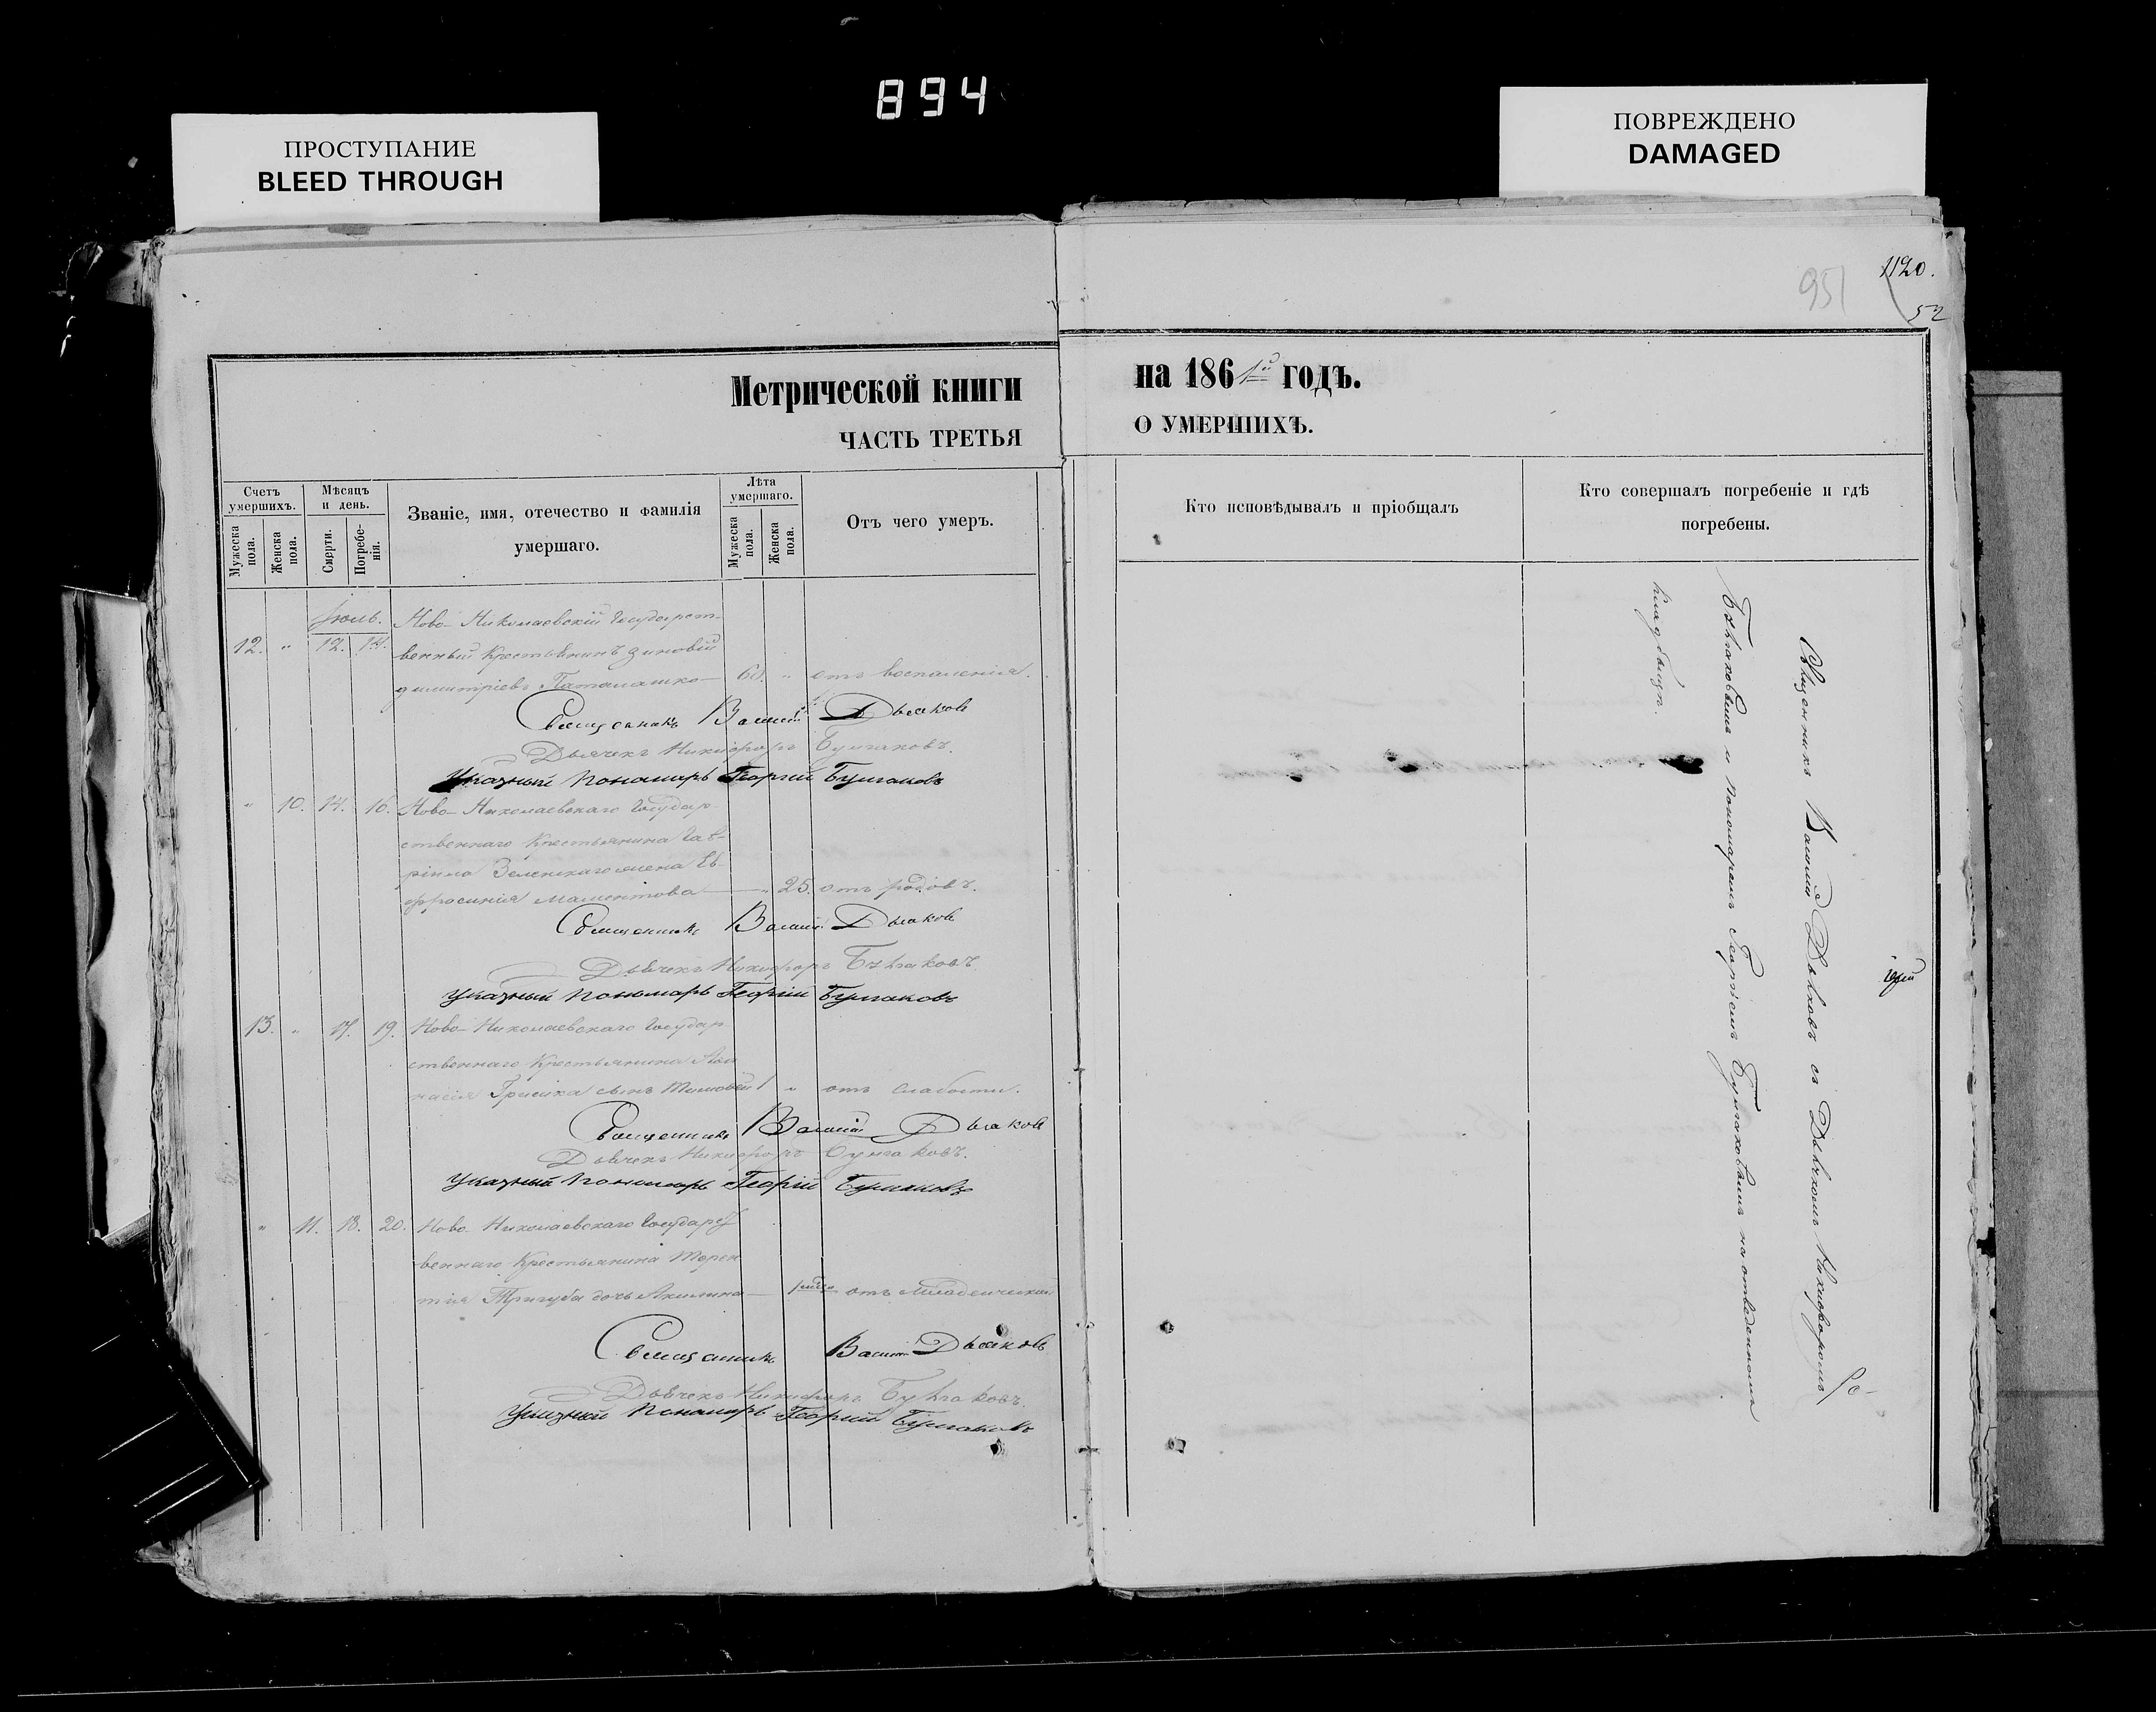 894
ПРОСТУПАНИЕ
BLEED THROUGH
ПОВРЕЖДЕНО
DAMAGED
951
1120.
52
Метрической книги
ЧАСТЬ ТРЕТЬЯ
на 1861го годъ.
О УМЕРШИХЪ.
Счетъ умершихъ.
Мужеска пола.
Женска пола.
Мѣсяцъ и день.
Смерти.
Погребенія.
Званіе, имя, отечество и фамилія
умершаго.
Лѣта умершаго.
Мужеска пола.
Женска пола.
Отъ чего умеръ.
Кто исповѣдывалъ и пріобщалъ
Кто совершалъ погребеніе и гдѣ
погребены.
Іюль. Ново-Николаевскій Государст-
12. " 12. 14. венный Крестьянинъ Зиновій
Димитріевъ 60. " отъ воспаленія.
Священникъ Василій Дьяковъ
Дьячекъ Никифоръ Булгаковъ.
Указный Пономарь Георгій Булгаковъ
" 10. 14. 16. Ново-Николаевскаго Государ-
ственнаго Крестьянина Гав-
ріила Зеленскаго жена Ев-
фросинія Мамонтова — " 25. отъ родовъ.
Священникъ Василій Дьяковъ
Дьячекъ Никифоръ Булгаковъ
Указный Пономарь Георгій Булгаковъ
13. " 17. 19. Ново-Николаевскаго Государ-
ственнаго Крестьянина Афа
насія сынъ Тимофей 1 " отъ слабости.
Священникъ Василій Дьяковъ
Дьячекъ Никифоръ Булгаковъ.
Указный Пономарь Георгій Булгаковъ
" 11. 18. 20. Ново-Николаевскаго Государст
веннаго Крестьянина Терен
тія Тригуба дочь Акилина — отъ младенческой
Священникъ Василій Дьяковъ
Дьячекъ Никифоръ Булгаковъ.
Указный Пономарь Георгій Булгаковъ
Священникъ Василій Дьяковъ съ Дьячкомъ Никифоромъ
Булгаковымъ и Пономаремъ Георгіемъ Булгаковымъ на отведенномъ
кладбищѣ.